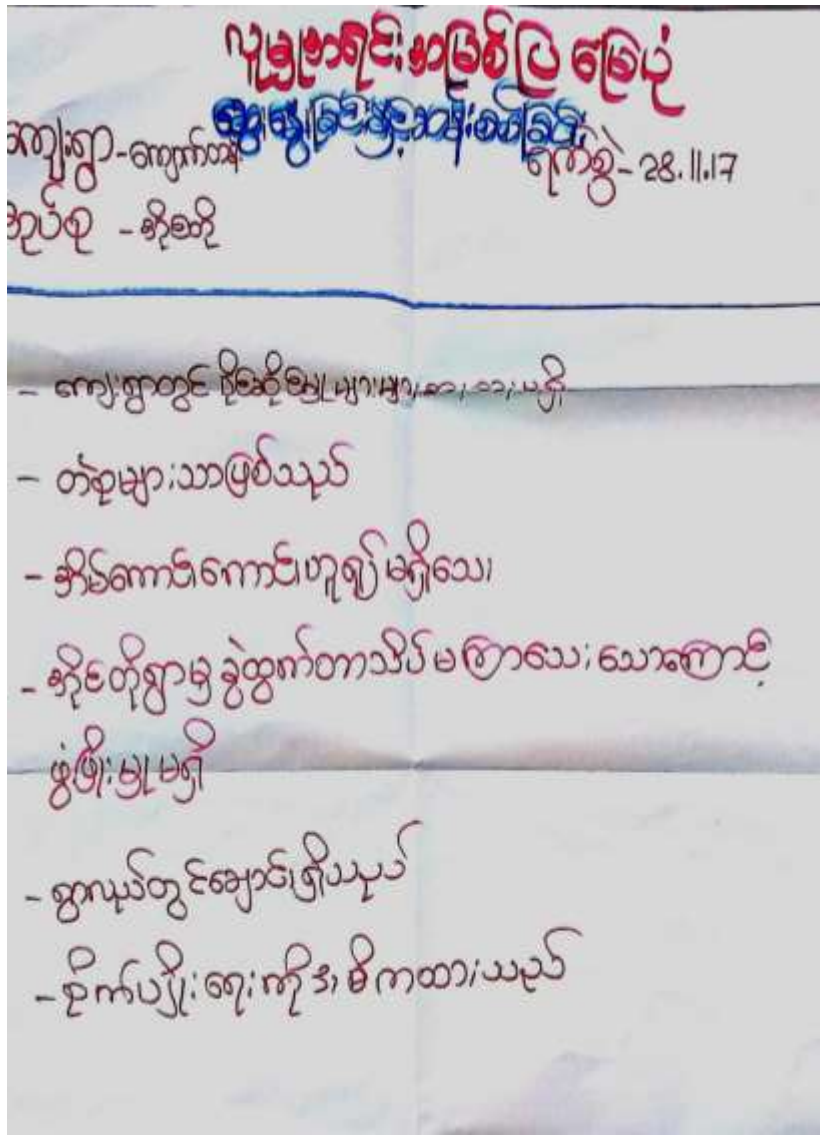 လူမှုအရင်းအမြစ်ပြ မြေပုံ
ဆွေးနွေးခြင်းနှင့်သန်းစစ်ခြင်း
ကျေးရွာ - ကျောက်တန်
ရက်စွဲ - 28.11.17
အုပ်စု - အိုင်တို
- ကျေးရွာတွင် မှု များများစားစား မရှိ
- တဲစုများသာဖြစ်သည်
- အိမ်ကောင်းကောင်းဟူ၍ မရှိသေး
- အိုင်တိုရွာမှ ခွဲထွက်တာသိပ်မကြာသေးသောကြောင့်
ဖွံ့ဖြိုးမှု မရှိ
- ရွာလည်တွင်ချောင်းရှိသည်
- စိုက်ပျိုးရေးကိုအဓိကထားသည်